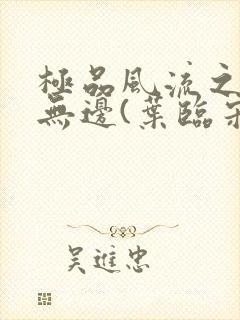 極品風流之
無邊(葉臨
吴進忠